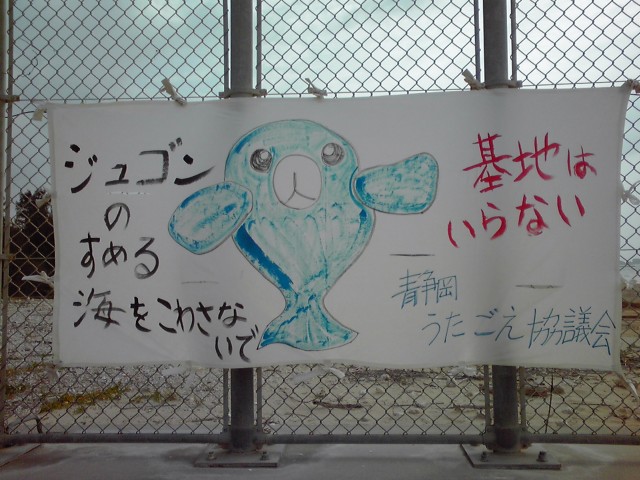 ジュゴン
の
すめる
海をこわさな
いで
基地は
いらない
静岡
うたごえ協議会